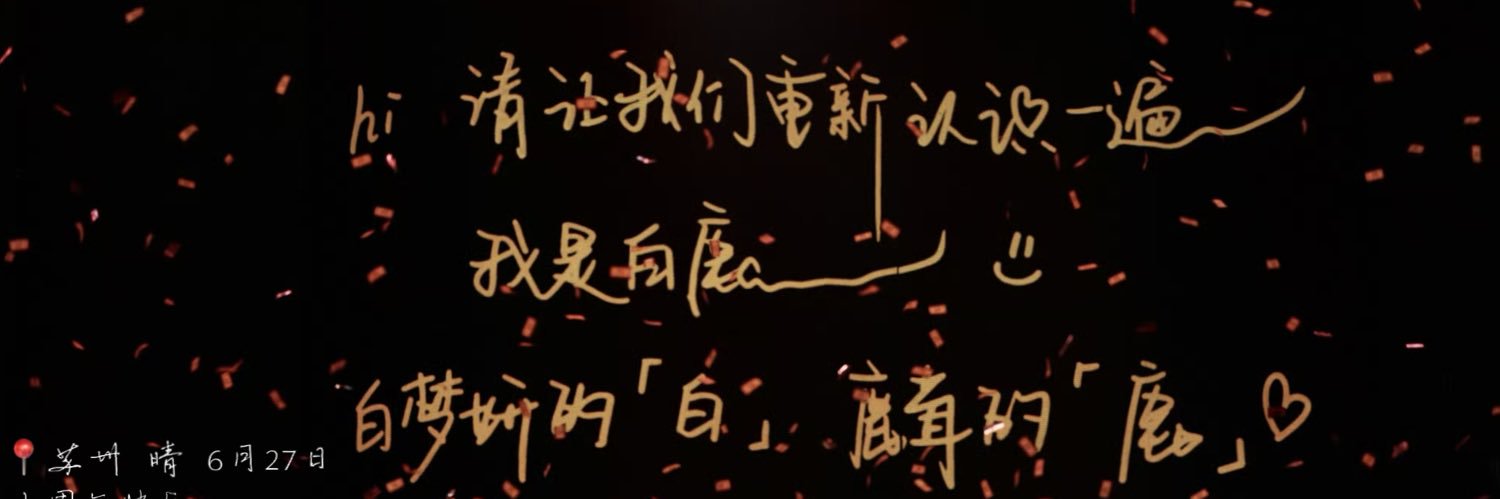 hi 请让我们重新认识一遍
我是白鹿
白梦妍的「白」 鹿茸的「鹿」
苏州 晴 6月27日